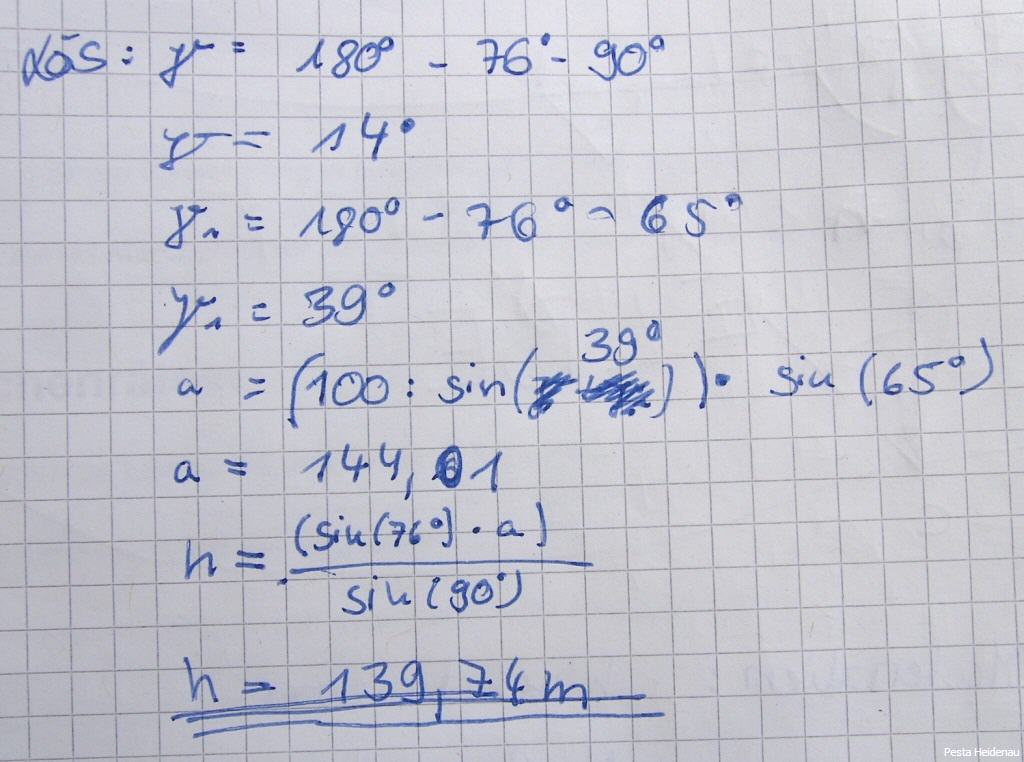 Lös: γ = 180° - 76° - 90°
γ = 14°
γ₁ = 180° - 76° - 65°
γ₁ = 39°
a = (100 : sin(39°)) · sin (65°)
a = 144,01
h = (sin(76°) · a)
sin(90°)
h = 139,74m
Pesta Heidenau